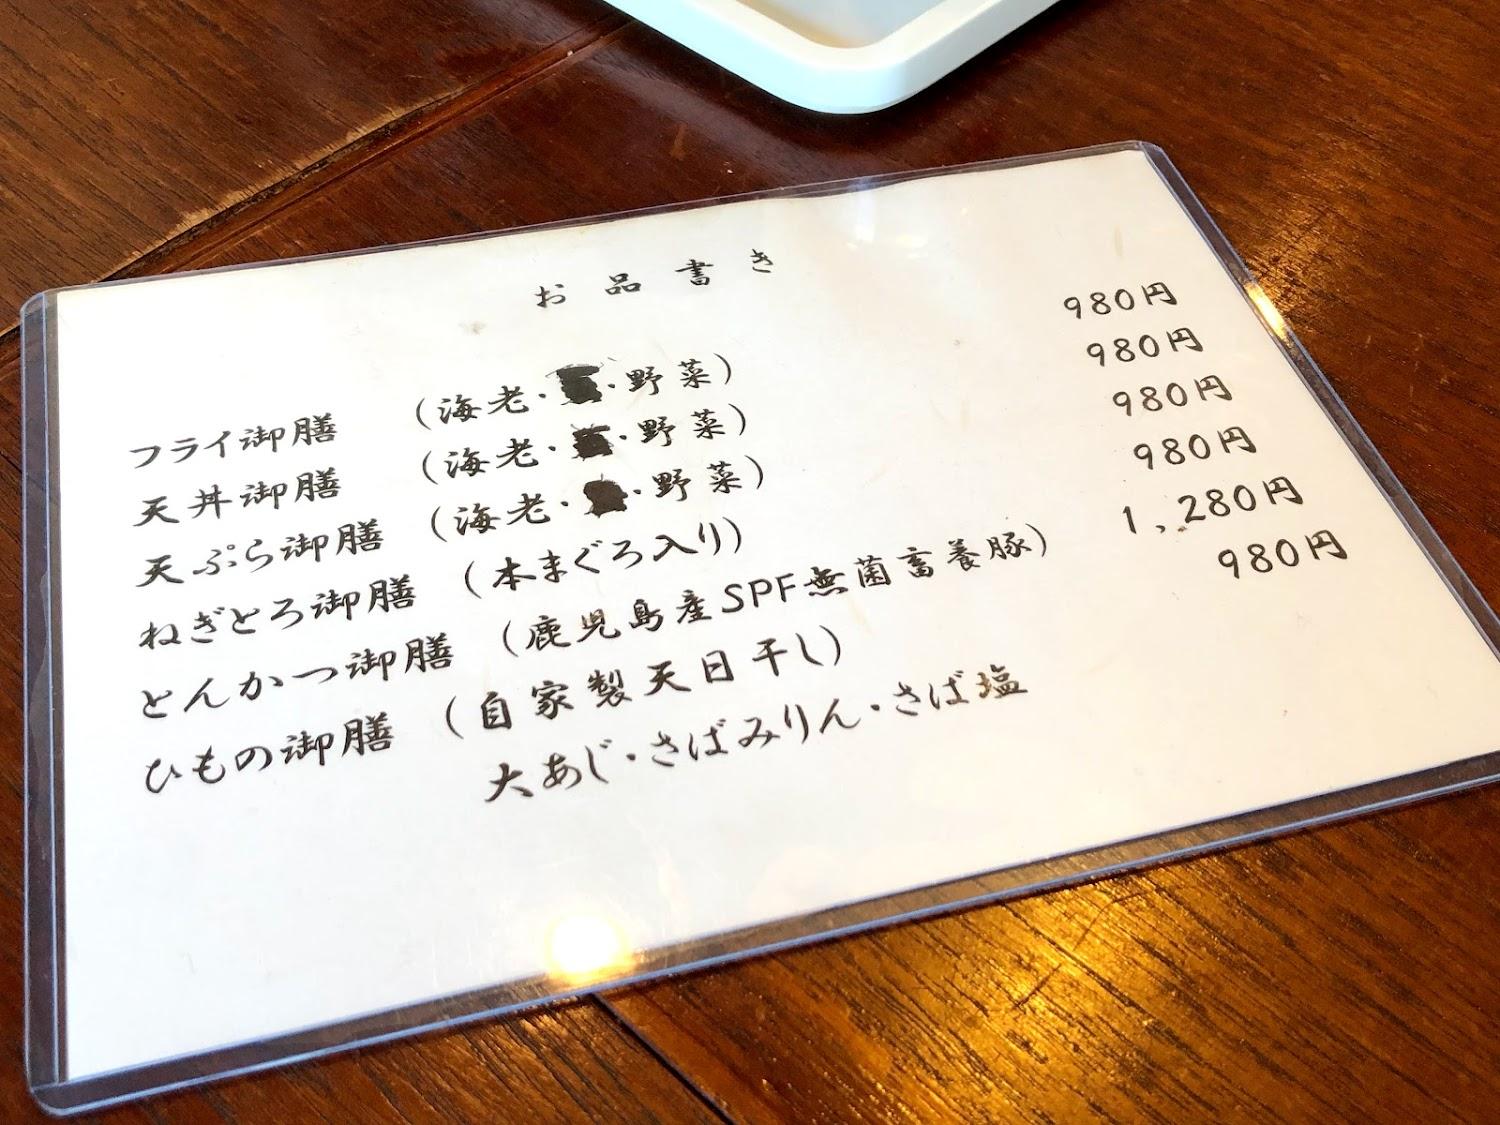 お品書き
フライ御膳 (海老・・野菜) 980円
天丼御膳 (海老・・野菜) 980円
天ぷら御膳 (海老・・野菜) 980円
ねぎとろ御膳 (本まぐろ入り) 980円
とんかつ御膳 (鹿児島産SPF無菌畜養豚) 1,280円
ひもの御膳 (自家製天日干し) 980円
大あじ・さばみりん・さば塩